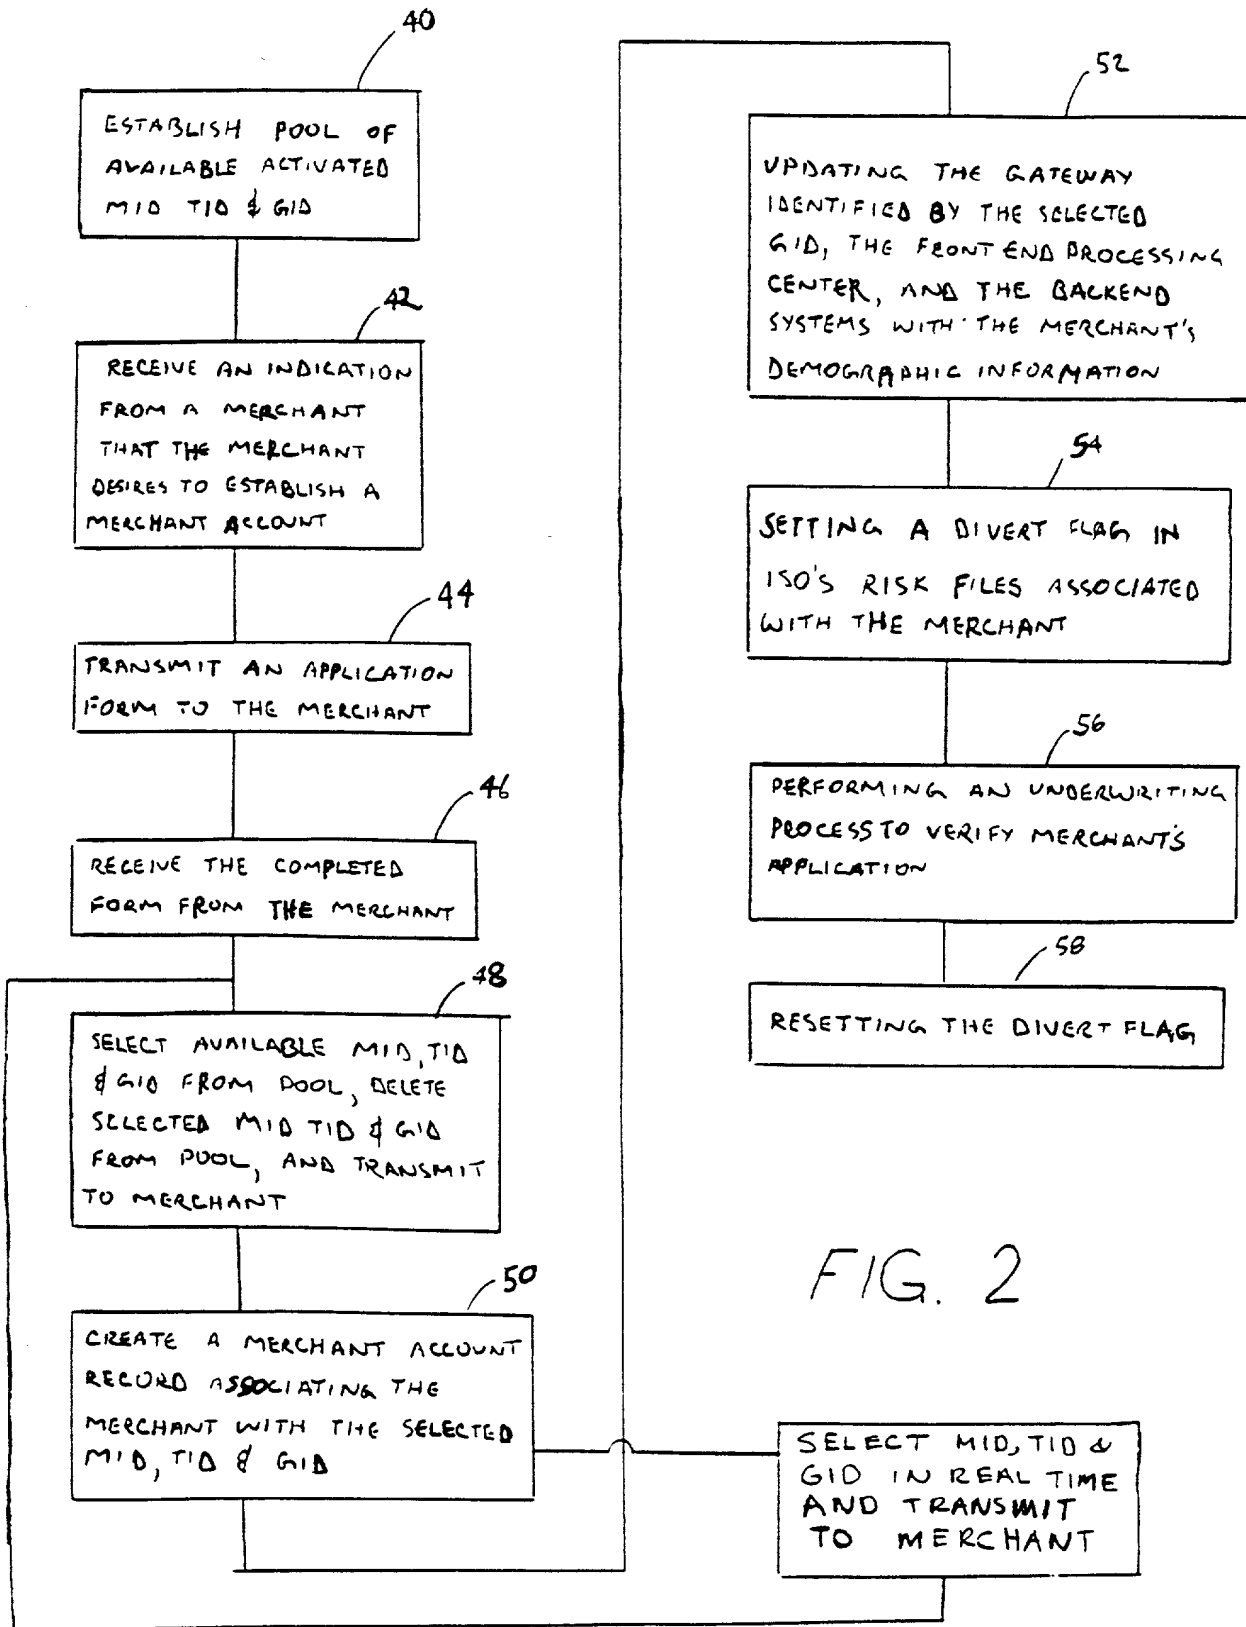 40
ESTABLISH POOL OF
AVAILABLE ACTIVATED
MID TID & GID
42
RECEIVE AN INDICATION
FROM A MERCHANT
THAT THE MERCHANT
DESIRES TO ESTABLISH A
MERCHANT ACCOUNT
44
TRANSMIT AN APPLICATION
FORM TO THE MERCHANT
46
RECEIVE THE COMPLETED
FORM FROM THE MERCHANT
48
SELECT AVAILABLE MID, TID
& GID FROM POOL, DELETE
SELECTED MID TID & GID
FROM POOL, AND TRANSMIT
TO MERCHANT
50
CREATE A MERCHANT ACCOUNT
RECORD ASSOCIATING THE
MERCHANT WITH THE SELECTED
MID, TID & GID
52
UPDATING THE GATEWAY
IDENTIFIED BY THE SELECTED
GID, THE FRONT END PROCESSING
CENTER, AND THE BACKEND
SYSTEMS WITH THE MERCHANT'S
DEMOGRAPHIC INFORMATION
54
SETTING A DIVERT FLAG IN
ISO'S RISK FILES ASSOCIATED
WITH THE MERCHANT
56
PERFORMING AN UNDERWRITING
PROCESS TO VERIFY MERCHANT'S
APPLICATION
58
RESETTING THE DIVERT FLAG
FIG. 2
SELECT MID, TID &
GID IN REAL TIME
AND TRANSMIT
TO MERCHANT